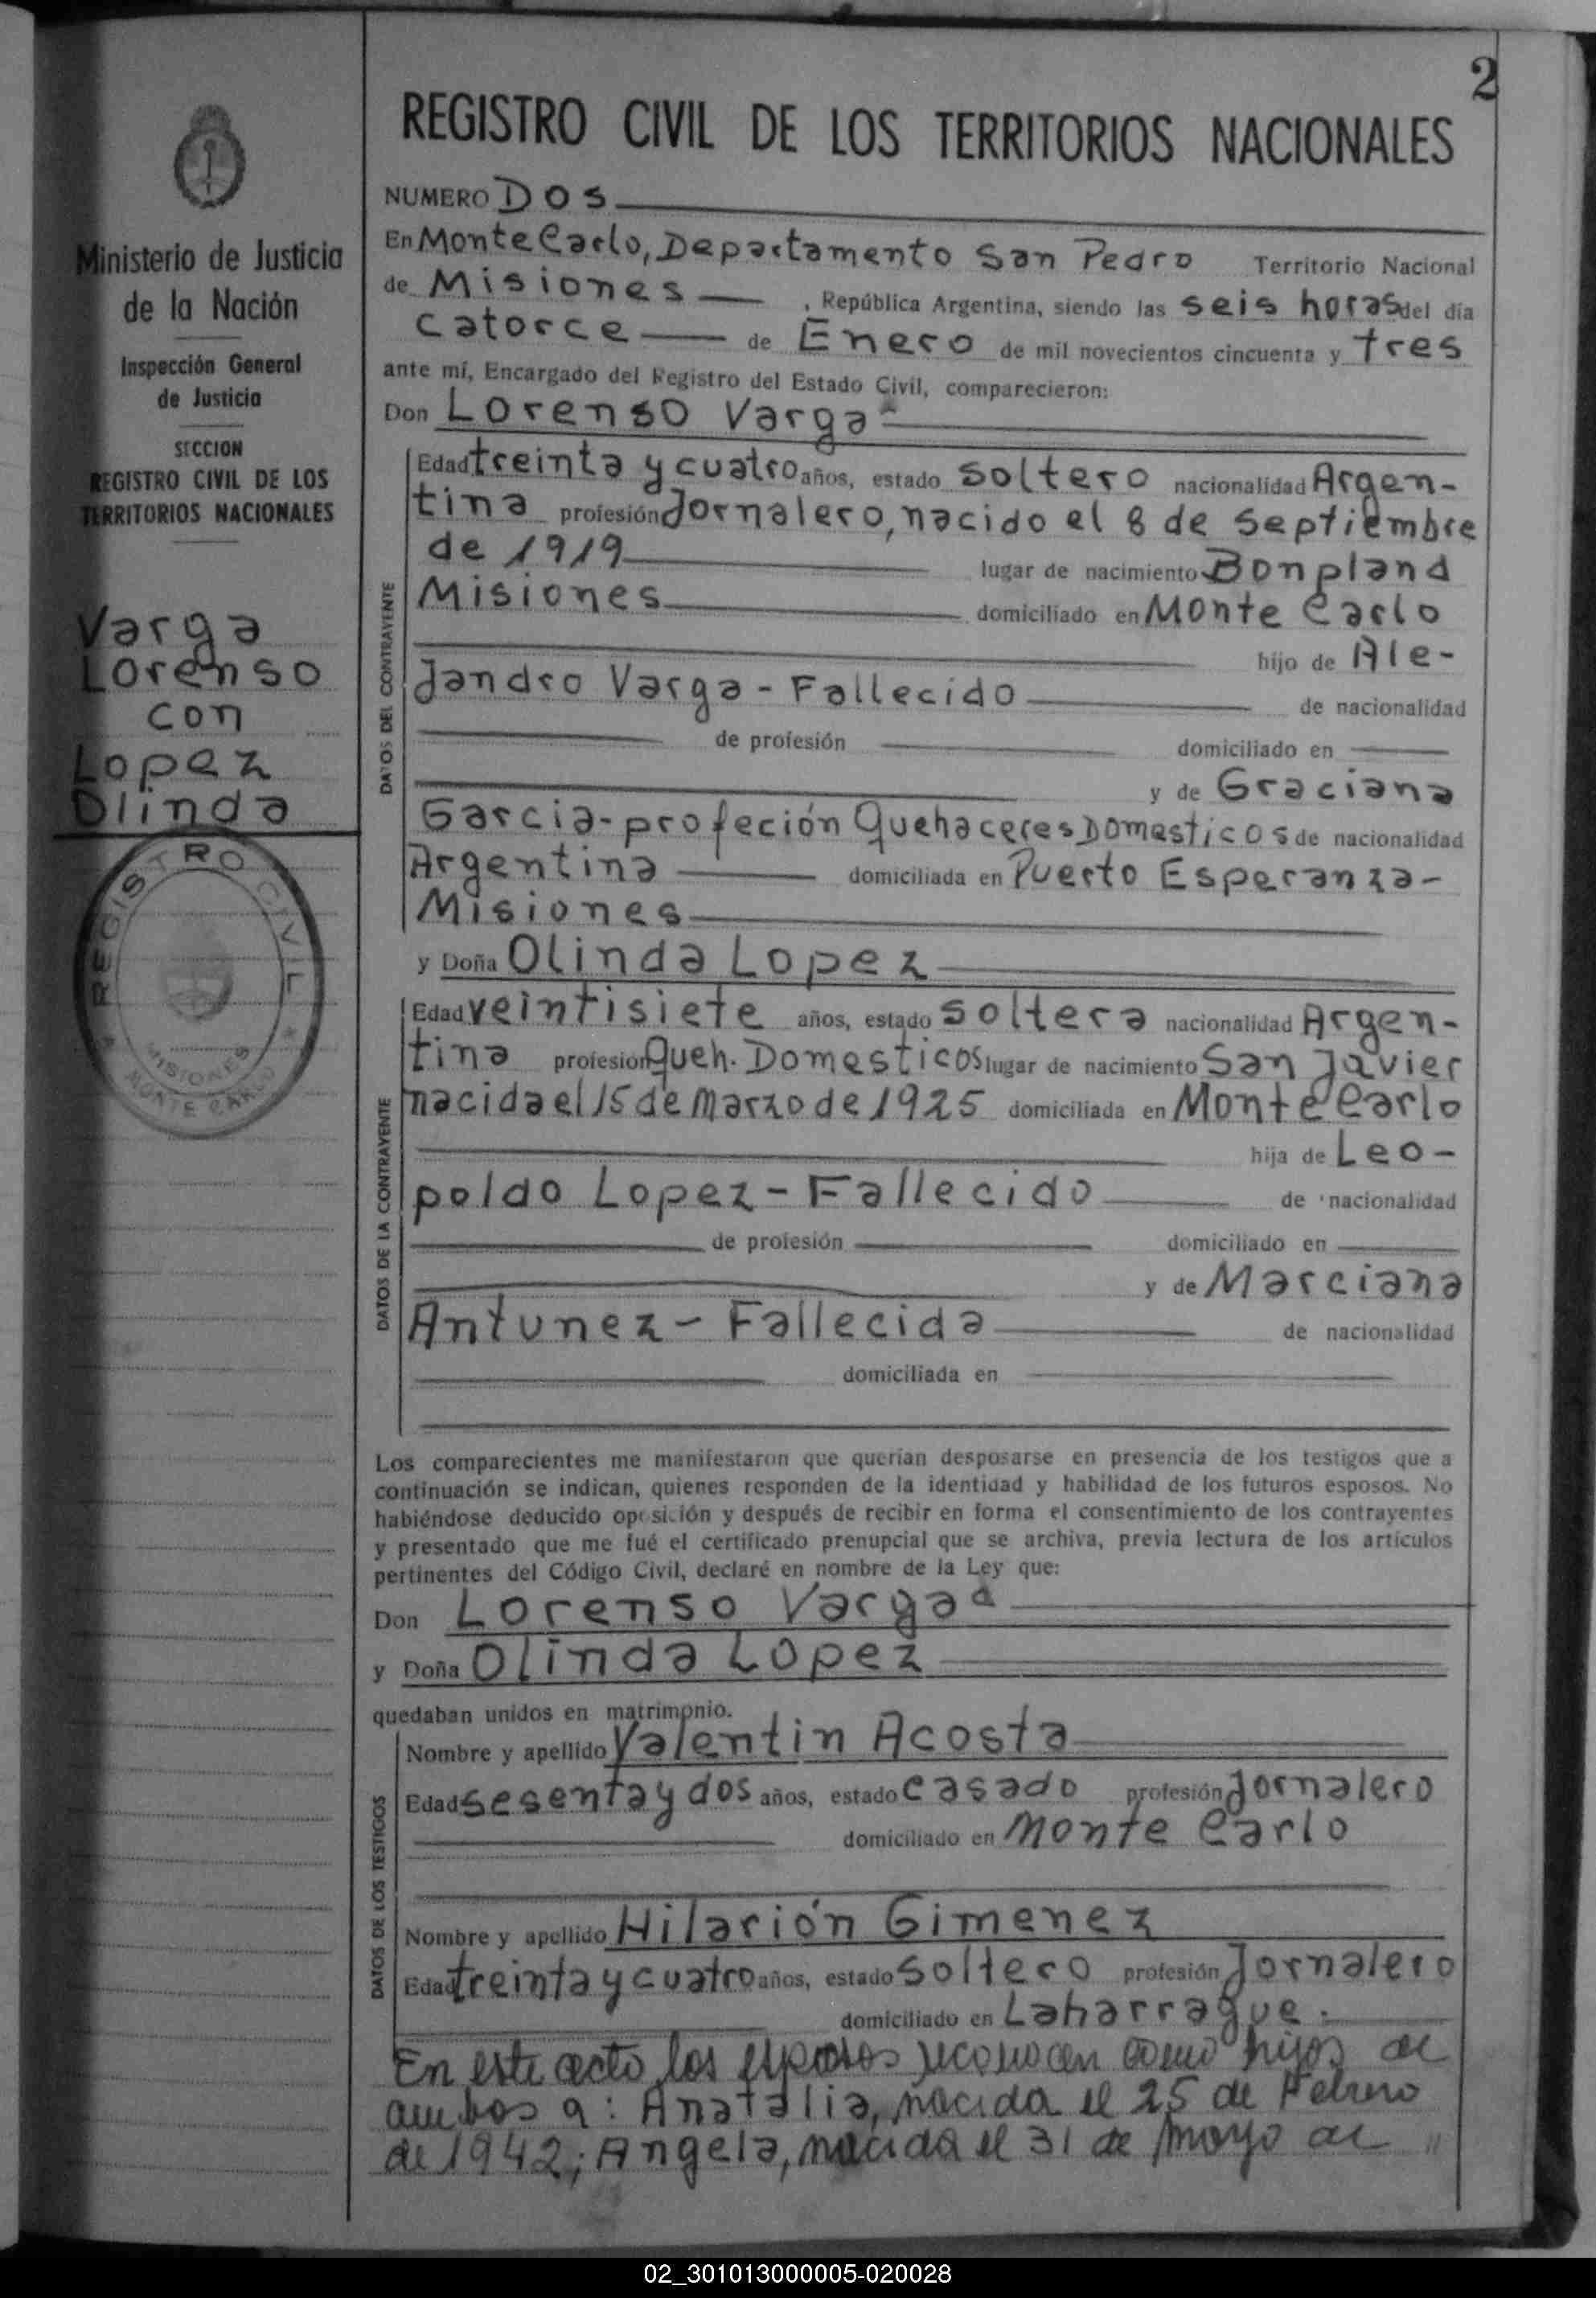 2
Ministerio de Justicia
de la Nación
Inspección General
de Justicia
SECCION
REGISTRO CIVIL DE LOS
TERRITORIOS NACIONALES
Varga
Lorenso
con
Lopez
Olinda
REGISTRO CIVIL
MISIONES
MONTE CARLO
REGISTRO CIVIL DE LOS TERRITORIOS NACIONALES
NUMERO Dos
En Monte Carlo, Departamento San Pedro Territorio Nacional
de Misiones, República Argentina, siendo las seis horas del día
catorce de Enero de mil novecientos cincuenta y tres
ante mí, Encargado del Registro del Estado Civil, comparecieron:
Don Lorenso Varga
DATOS DEL CONTRAYENTE
Edad treinta y cuatro años, estado soltero nacionalidad Argen-
tina profesión Jornalero, nacido el 8 de Septiembre
de 1919 lugar de nacimiento Bonpland
Misiones domiciliado en Monte Carlo
hijo de Ale-
Jandro Varga - Fallecido de nacionalidad
de profesión domiciliado en
y de Graciana
Garcia - profeción Quehaceres Domesticos de nacionalidad
Argentina domiciliada en Puerto Esperanza -
Misiones
y Doña Olinda Lopez
DATOS DE LA CONTRAYENTE
Edad veintisiete años, estado soltera nacionalidad Argen-
tina profesion Queh. Domesticos lugar de nacimiento San Javier
nacida el 15 de Marzo de 1925 domiciliada en Monte Carlo
hija de Leo-
poldo Lopez - Fallecido de nacionalidad
de profesión domiciliado en
y de Marciana
Antunez - Fallecida de nacionalidad
domiciliada en
Los comparecientes me manifestaron que querían desposarse en presencia de los testigos que a
continuación se indican, quienes responden de la identidad y habilidad de los futuros esposos. No
habiéndose deducido oposición y después de recibir en forma el consentimiento de los contrayentes
y presentado que me fué el certificado prenupcial que se archiva, previa lectura de los artículos
pertinentes del Código Civil, declaré en nombre de la Ley que:
Don Lorenso Varga
y Doña Olinda Lopez
quedaban unidos en matrimonio.
DATOS DE LOS TESTIGOS
Nombre y apellido Valentin Acosta
Edad sesenta y dos años, estado casado profesión Jornalero
domiciliado en Monte Carlo
Nombre y apellido Hilarión Gimenez
Edad treinta y cuatro años, estado soltero profesión Jornalero
domiciliado en Laharrague.
En este acto los esposos reconocen como hijos de
ambos a: Anatalia, nacida el 25 de Febrero
de 1942; Angela, nacida el 31 de mayo de "
02_301013000005-020028